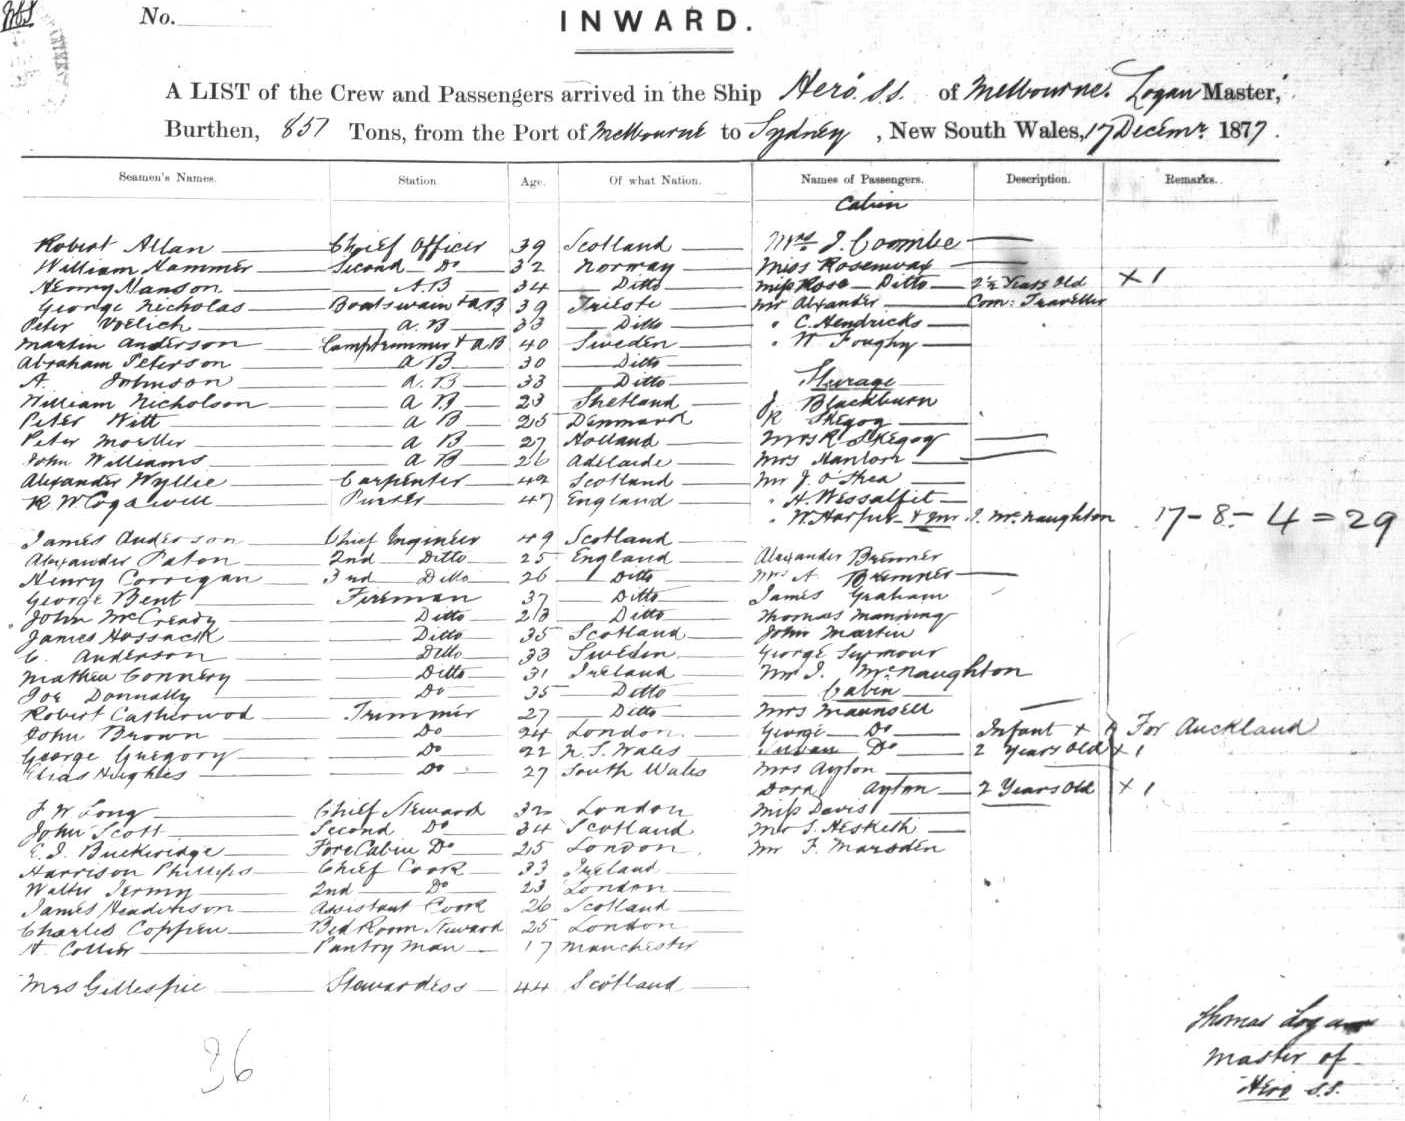 No.
INWARD.
A LIST of the Crew and Passengers arrived in the Ship Hero s.s. of Melbourne. Logan Master,
Burthen, 857 Tons, from the Port of Melbourne to Sydney, New South Wales, 17 Decemr 1877.
Seamen's Names. Station Age. Of what Nation. Names of Passengers. Description. Remarks.
Cabin
Robert Allan Chief Officer 39 Scotland Mrs J. Coombe
William Hammer Second Do 32 Norway Miss Rosenwax
Henry Hanson A.B 34 Ditto Miss Rose Ditto 2½ Years Old X 1
George Nicholas Boatswain & AB 39 Trieste Mr Alexander Com: Traveller
Peter A.B 33 Ditto " C. Hendricks
Martin Anderson Lamptrimmer & AB 40 Sweden " W Foughy
Abraham Peterson AB 30 Ditto
A. Johnson A.B 33 Ditto Steerage
William Nicholson AB 23 Shetland J Blackburn
Peter Witt AB 25 Denmark R Skegog
Peter Moeller AB 27 Holland Mrs R Skegog
John Williams AB 26 Adelaide Mrs
Alexander Wyllie Carpenter 42 Scotland Mr J. O'Shea
R W Cogswill Purser 47 England " H. Wessalfit
" W. Harper & Mr J. McNaughton 17-8-4=29
James Anderson Chief Engineer 49 Scotland
Alexander Paton 2nd Ditto 25 England Alexander Bremner
Henry Corrigan 3rd Ditto 26 Ditto Mrs A Bremner
George Bent Fireman 37 Ditto James Graham
John McCready Ditto 23 Ditto Thomas Manning
James Hossack Ditto 35 Scotland John Martin
C. Anderson Ditto 33 Sweden George Seymour
Mathew Connery Ditto 31 Ireland Mr J. McNaughton
Joe Donnally Do 35 Ditto Cabin
Robert Catherwod Trimmer 27 Ditto Mrs Maunsell
John Brown Do 24 London George Do Infant & For Auckland
George Gregory Do 22 N.S. Wales Susan Do 2 Years Old X 1
Hughes Do 27 South Wales Mrs Ayton
Dora Ayton 2 Years Old X 1
J W Long Chief Steward 32 London Miss Davis
John Scott Second Do 34 Scotland Mr S. Hesketh
E. J. Buckeridge Fore Cabin Do 25 London Mr F. Marsden
Harrison Phillips Chief Cook 33 Ireland
Walter Jermy 2nd Do 23 London
James Headinson Assistant Cook 26 Scotland
Charles Coppin Bed Room Steward 25 London
A. Collier Pantry Man 17 Manchester
Mrs Gillespie Stewardess 44 Scotland
36
Thomas Logan
Master of
Hero s.s.